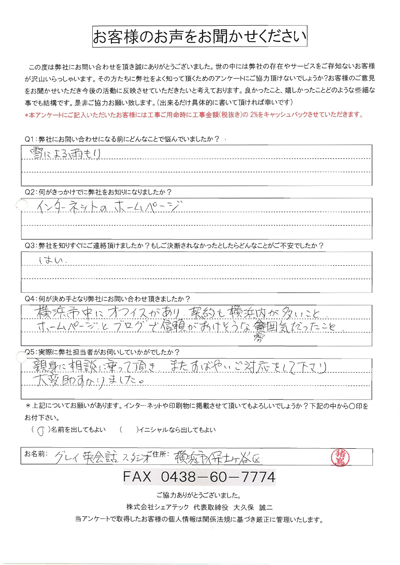 お客様のお声をお聞かせください
この度は弊社にお問い合わせを頂き誠にありがとうございました。世の中には弊社の存在やサービスをご存知ないお客様
が沢山いらっしゃいます。その方たちに弊社をよく知って頂くためのアンケートにご協力頂けないでしょうか？お客様のご意見
をお聞かせいただき今後の活動に反映させていただきたいと考えております。良かったこと、嬉しかったことどのような些細な
事でも結構です。是非ご協力お願い致します。(出来るだけ具体的に書いて頂ければ幸いです)
*本アンケートにご記入いただいたお客様には工事ご用命時に工事金額(税抜き)の 2%をキャッシュバックさせていただきます。
Q1：弊社にお問い合わせになる前にどんなことで悩んでいましたか？
雪による雨もり
Q2：何がきっかけでに弊社をお知りになりましたか？
インターネットの ホームページ
Q3：弊社を知りすぐにご連絡頂けましたか？もしご決断されなかったとしたらどんなことがご不安でしたか？
はい
Q4：何が決め手となり弊社にお問い合わせ頂きましたか？
横浜市中にオフィスがあり 契約も横浜内が多いこと
ホームページとブログで信頼がおけそうな雰囲気だったこと
Q5：実際に弊社担当者がお伺いしていかがでしたか？
親身に相談に乗って頂き またすばやいご対応をして下さり
大変助かりました。
＊上記についてお願いがあります。インターネットや印刷物に掲載させて頂いてもよろしいでしょうか？下記の中から〇印を
お付下さい。
(〇)名前を出してもよい （ ）イニシャルなら出してもよい
お名前: グレイ英会話スタジオ 住所: 横浜市保土ヶ谷区
FAX 0438-60-7774
ご協力ありがとうございました。
株式会社シェアテック 代表取締役 大久保 誠二
当アンケートで取得したお客様の個人情報は関係法規に基づき厳正に管理いたします。